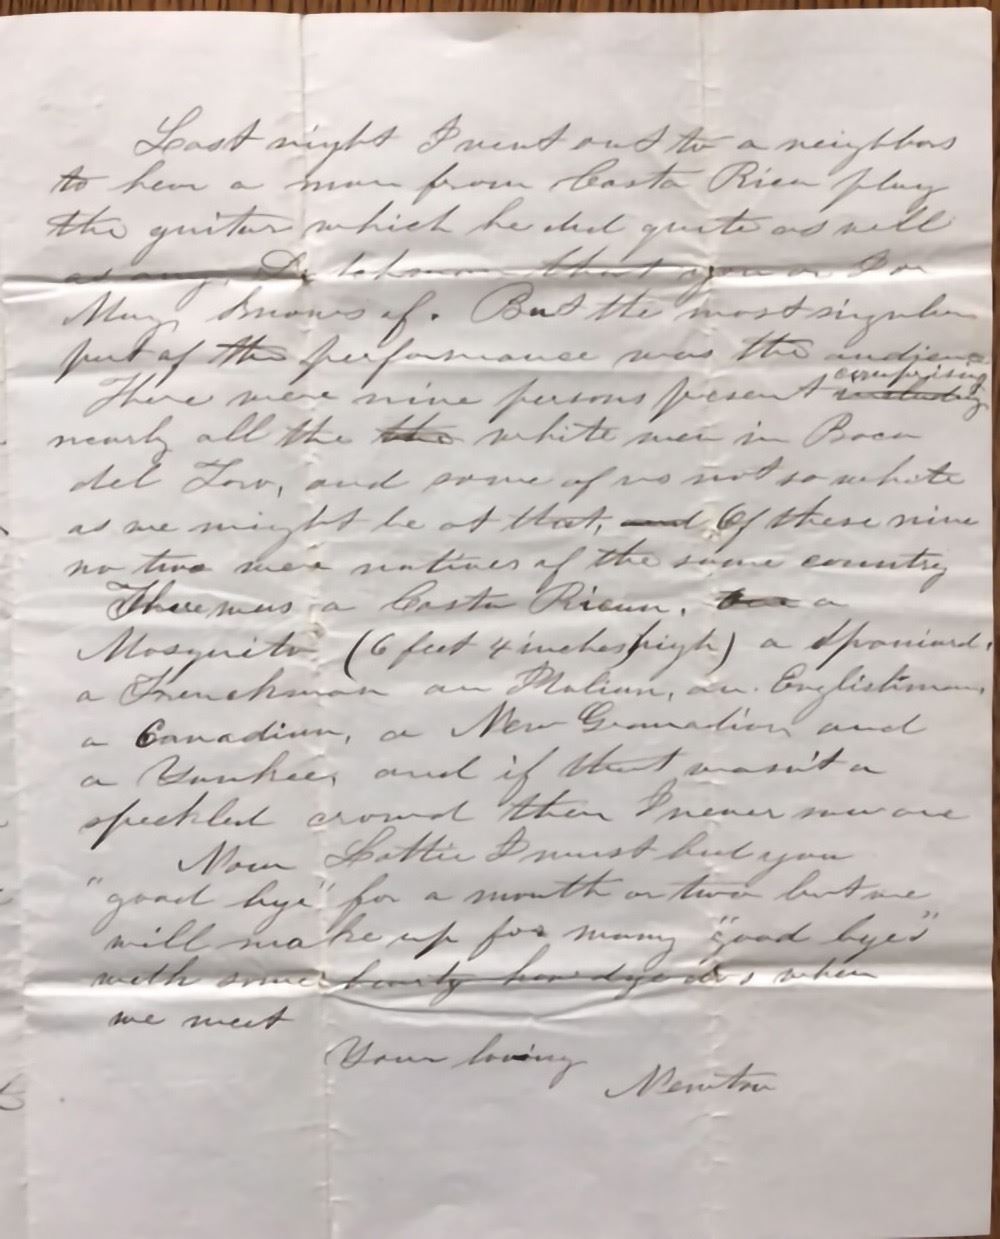 Last night I went out to a neighbors
to hear a man from Costa Rica play
the guitar which he did quite as well
as any Dutchman that you or I or
May knows of. But the most singular
part of the performance was the audience
There were nine persons present comprising including
nearly all the the white men in Boca
del Toro, and some of us not so white
as we might be at that, and Of these nine
no two were natives of the same country
There was a Costa Rican, a
Mosquito (6 feet 4 inches high) a Spaniard,
a Frenchman an Italian, an Englishman,
a Canadian, a New Granadian and
a Yankee, and if that wasn't a
speckled crowd then I never saw one
Now Lottie I must bid you
"good bye" for a month or two but we
will make up for many "good byes"
with some hearty howdyedos when
we meet
Your loving
Newton